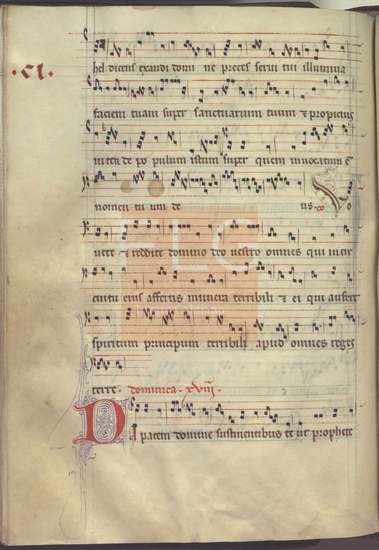 .cl.
hel dicens exaudi domi ne preces servi tui illumina
faciem tuam super sanctuarium tuum & propicius
populum istum super quem invocatum e
nomen tu um de us. co Vo
vete & reddite domino deo vestro omnes qui in cir
cuitu eius affertis munera terribili & ei qui aufert
spiritum principum terribili apud omnes reges
terre. dominica. xviij.
Da pacem domine sustinentibus te ut prophete